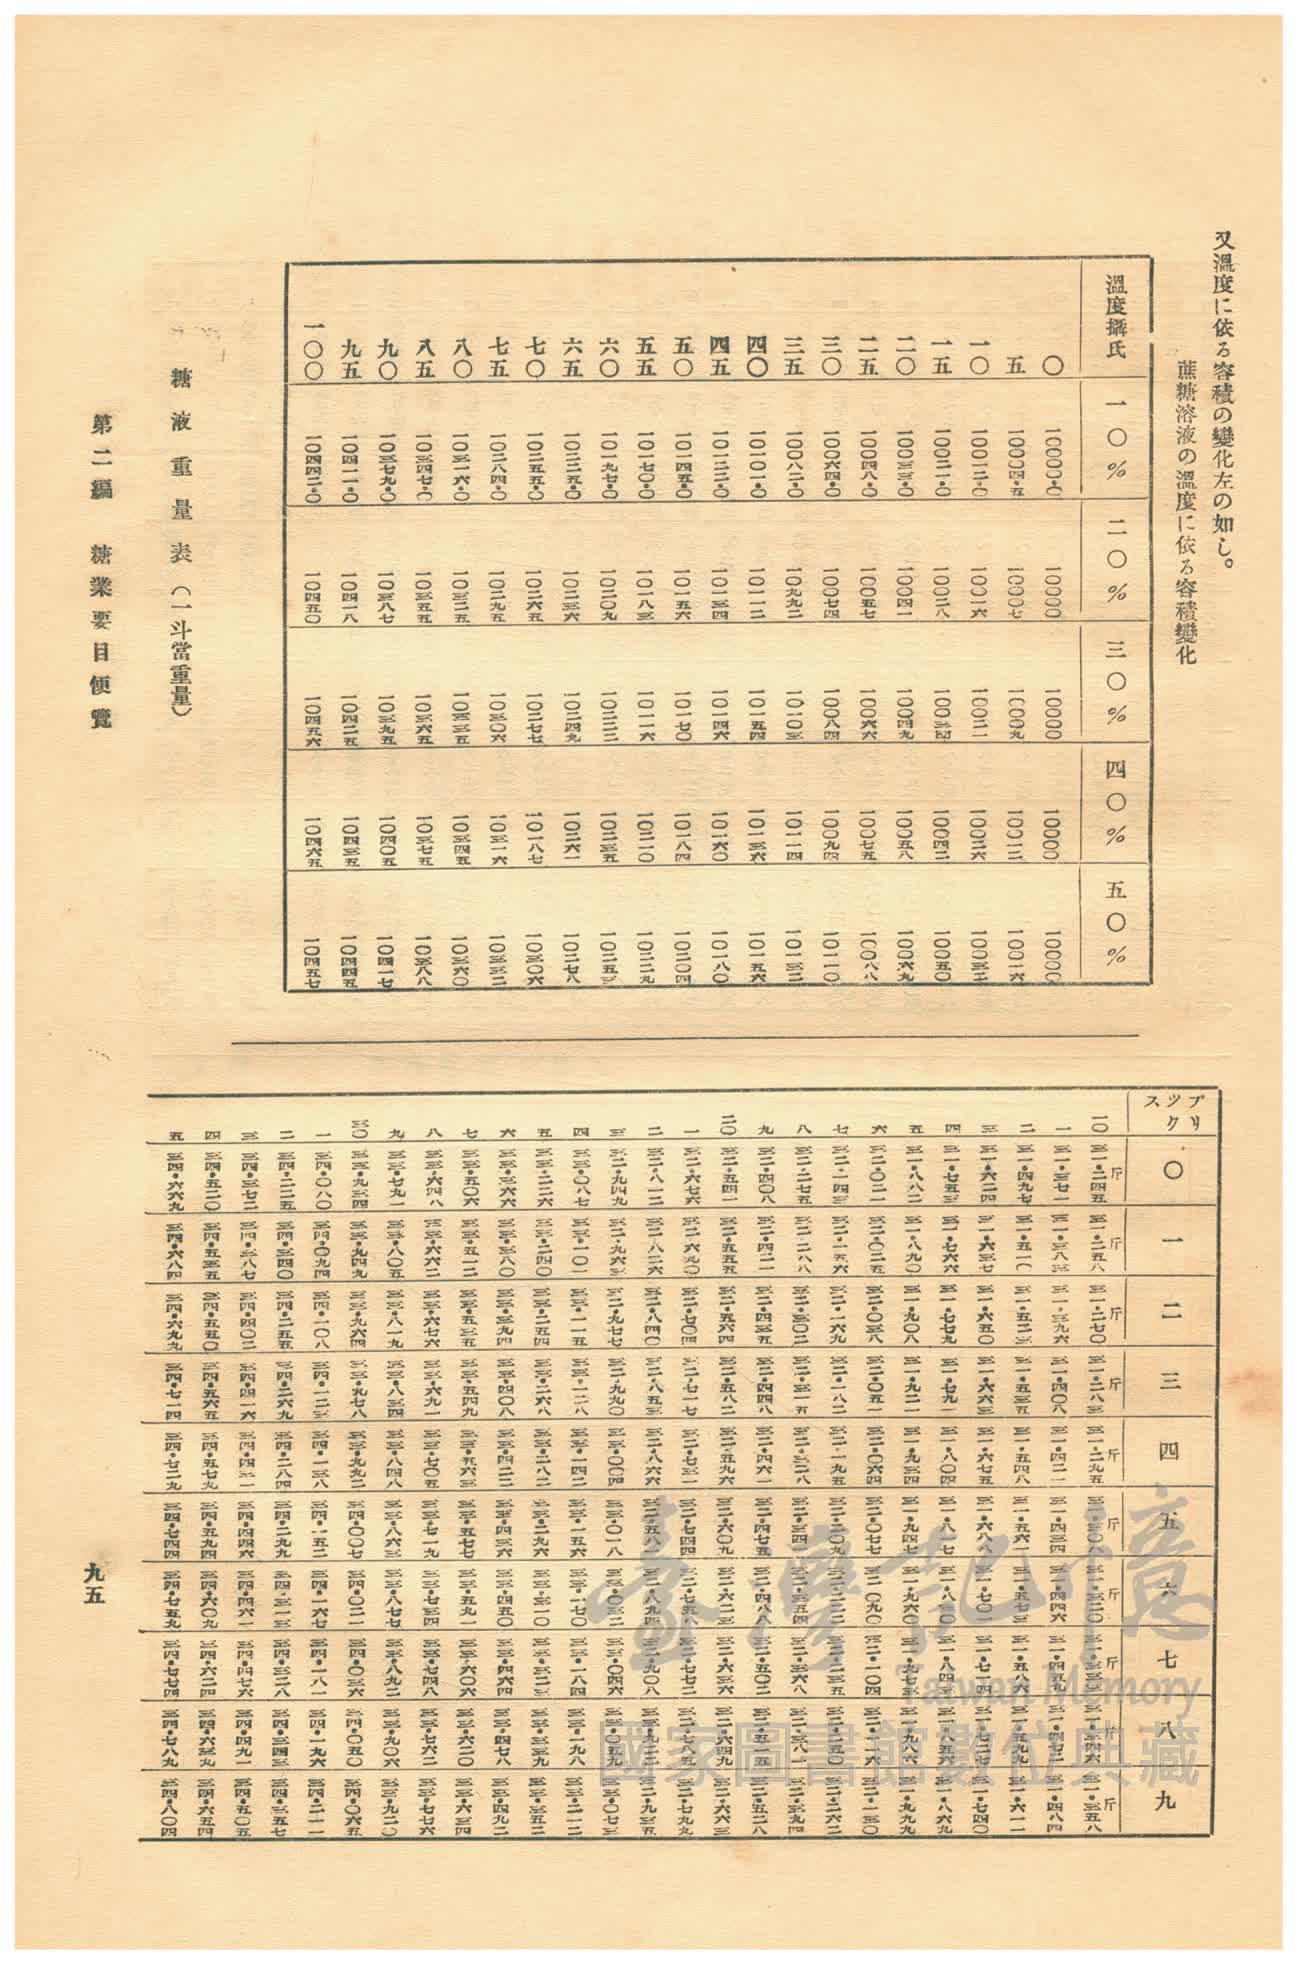 又溫度に依る容積の變化左の如し。
蔗糖溶液の溫度に依る容積變化
溫度攝氏 一〇% 二〇% 三〇% 四〇% 五〇%
〇 一〇〇〇〇・〇 一〇〇〇〇 一〇〇〇〇 一〇〇〇〇 一〇〇〇〇
五 一〇〇〇四・五 一〇〇〇七 一〇〇〇九 一〇〇一二 一〇〇一六
一〇 一〇〇一二・〇 一〇〇一六 一〇〇二一 一〇〇二六 一〇〇三二
一五 一〇〇二一・〇 一〇〇二八 一〇〇三四 一〇〇四二 一〇〇五〇
二〇 一〇〇三三・〇 一〇〇四一 一〇〇四九 一〇〇五八 一〇〇六九
二五 一〇〇四八・〇 一〇〇五七 一〇〇六六 一〇〇七五 一〇〇八八
三〇 一〇〇六四・〇 一〇〇七四 一〇〇八四 一〇〇九四 一〇一一〇
三五 一〇〇八二・〇 一〇九九二 一〇一〇三 一〇一一四 一〇一三二
四〇 一〇一〇一・〇 一〇一一二 一〇一五四 一〇一三六 一〇一五六
四五 一〇一二二・〇 一〇一三四 一〇一四六 一〇一六〇 一〇一八〇
五〇 一〇一四五・〇 一〇一五六 一〇一七〇 一〇一八四 一〇二〇四
五五 一〇一七〇・〇 一〇一八三 一〇一一六 一〇二一〇 一〇二二九
六〇 一〇一九七・〇 一〇二〇九 一〇二二二 一〇二三五 一〇二五三
六五 一〇二二五・〇 一〇二三六 一〇二四九 一〇二六一 一〇二七八
七〇 一〇二五五・〇 一〇二六五 一〇二七七 一〇一八七 一〇三〇六
七五 一〇二八四・〇 一〇二九五 一〇三〇六 一〇三一六 一〇三三二
八〇 一〇三一六・〇 一〇三二五 一〇三三五 一〇三四五 一〇三六〇
八五 一〇三四七・〇 一〇三五五 一〇三六五 一〇三七五 一〇三八八
九〇 一〇三七九・〇 一〇三八七 一〇三九五 一〇四〇五 一〇四一七
九五 一〇四一一・〇 一〇四一八 一〇四二五 一〇四三五 一〇四四五
一〇〇 一〇四四二・〇 一〇四五〇 一〇四五六 一〇四六五 一〇四五七
糖液重量表（一斗當重量）
ブリックス 〇 一 二 三 四 五 六 七 八 九
斤 斤 斤 斤 斤 斤 斤 斤 斤 斤
一〇 三一・二四五 三一・二五八 三一・二七〇 三一・二八三 三一・二九五 三一・三〇八 三一・三二〇 三一・三三三 三一・三四六 三一・三五八
一 三一・三七一 三一・三八三 三一・三九六 三一・四〇八 三一・四二一 三一・四三四 三一・四四六 三一・四五九 三一・四七二 三一・四八四
二 三一・四九七 三一・五一〇 三一・五二三 三一・五三五 三一・五四八 三一・五六一 三一・五七三 三一・五八六 三一・五九九 三一・六一一
三 三一・六二四 三一・六三七 三一・六五〇 三一・六六三 三一・六七五 三一・六八八 三一・七〇一 三一・七一四 三一・七二七 三一・七四〇
四 三一・七五三 三一・七六六 三一・七七九 三一・七九一 三一・八〇四 三一・八一七 三一・八三〇 三一・八四三 三一・八五六 三一・八六九
五 三一・八八二 三一・八九〇 三一・九〇八 三一・九二一 三一・九三四 三一・九四七 三一・九六〇 三一・九七三 三一・九八六 三一・九九九
六 三二・〇一二 三二・〇二五 三二・〇三八 三二・〇五一 三二・〇六四 三二・〇七七 三二・〇九〇 三二・一〇四 三二・一一六 三二・一三〇
七 三二・一四三 三二・一五六 三二・一六九 三二・一八二 三二・一九五 三二・二〇九 三二・二二二 三二・二三五 三二・二五〇 三二・二六二
八 三二・二七五 三二・二八八 三二・三〇二 三二・三一五 三二・三二八 三二・三四一 三二・三五四 三二・三六八 三二・三八一 三二・三九四
九 三二・四〇八 三二・四二一 三二・四三五 三二・四四八 三二・四六一 三二・四七五 三二・四八八 三二・五〇二 三二・五一五 三二・五二八
二〇 三二・五四一 三二・五五五 三二・五六四 三二・五八二 三二・五九六 三二・六〇九 三二・六二三 三二・六三六 三二・六四九 三二・六六三
一 三二・六七六 三二・六九〇 三二・七〇四 三二・七一七 三二・七三一 三二・七四四 三二・七五八 三二・七七二 三二・七八五 三二・七九九
二 三二・八一二 三二・八二六 三二・八四〇 三二・八五三 三二・八六六 三二・五八八 三二・八九四 三二・九〇八 三二・九二二 三二・九三五
三 三二・九四九 三二・九六三 三二・九七七 三二・九九〇 三三・〇〇四 三三・〇一八 三三・〇三二 三三・〇四六 三三・〇五九 三三・〇七三
四 三三・〇八七 三三・一〇一 三三・一一五 三三・一二八 三三・一四二 三三・一五六 三三・一七〇 三三・一八四 三三・一九八 三三・二一二
五 三三・二二六 三三・二四〇 三三・二五四 三三・二六八 三三・二八二 三三・二九六 三三・三一〇 三三・三二三 三三・三三九 三三・三五二
六 三三・三六六 三三・三八〇 三三・三九四 三三・四〇八 三三・四二二 三三・四三六 三三・四五〇 三三・四六四 三三・四七八 三三・四九二
七 三三・五〇六 三三・五一二 三三・五三五 三三・五四九 三三・五六三 三三・五七七 三三・五九一 三三・六〇六 三三・六二〇 三三・六三四
八 三三・六四八 三三・六六二 三三・六七六 三三・六九一 三三・七〇五 三三・七一九 三三・七三四 三三・七四八 三三・七六二 三三・七七六
九 三三・七九一 三三・八〇五 三三・八一九 三三・八三四 三三・八四八 三三・八六三 三三・八七七 三三・八九二 三三・九〇六 三三・九二〇
三〇 三三・九三四 三三・九四九 三三・九六四 三三・九七八 三三・九九二 三四・〇〇七 三四・〇二一 三四・〇三六 三四・〇五〇 三四・〇六五
一 三四・〇八〇 三四・〇九四 三四・一〇八 三四・一二三 三四・一三八 三四・一五二 三四・一六七 三四・一八一 三四・一九六 三四・二一一
二 三四・二二五 三四・三四〇 三四・二五五 三四・二六九 三四・二八四 三四・二九九 三四・三一三 三四・三二八 三四・三四三 三四・三五七
三 三四・三七二 三四・三八七 三四・四〇二 三四・四一六 三四・四三一 三四・四四六 三四・四六一 三四・四七六 三四・四九一 三四・五〇五
四 三四・五二〇 三四・五三五 三四・五五〇 三四・五六五 三四・五七九 三四・五九四 三四・六〇九 三四・六二四 三四・六三九 三四・六五四
五 三四・六六九 三四・六八四 三四・六九九 三四・七一四 三四・七二九 三四・七四四 三四・七五九 三四・七七四 三四・七八九 三四・八〇四
第二編 糖業要目便覽
九五
臺灣記憶
Taiwan Memory
國家圖書館數位典藏